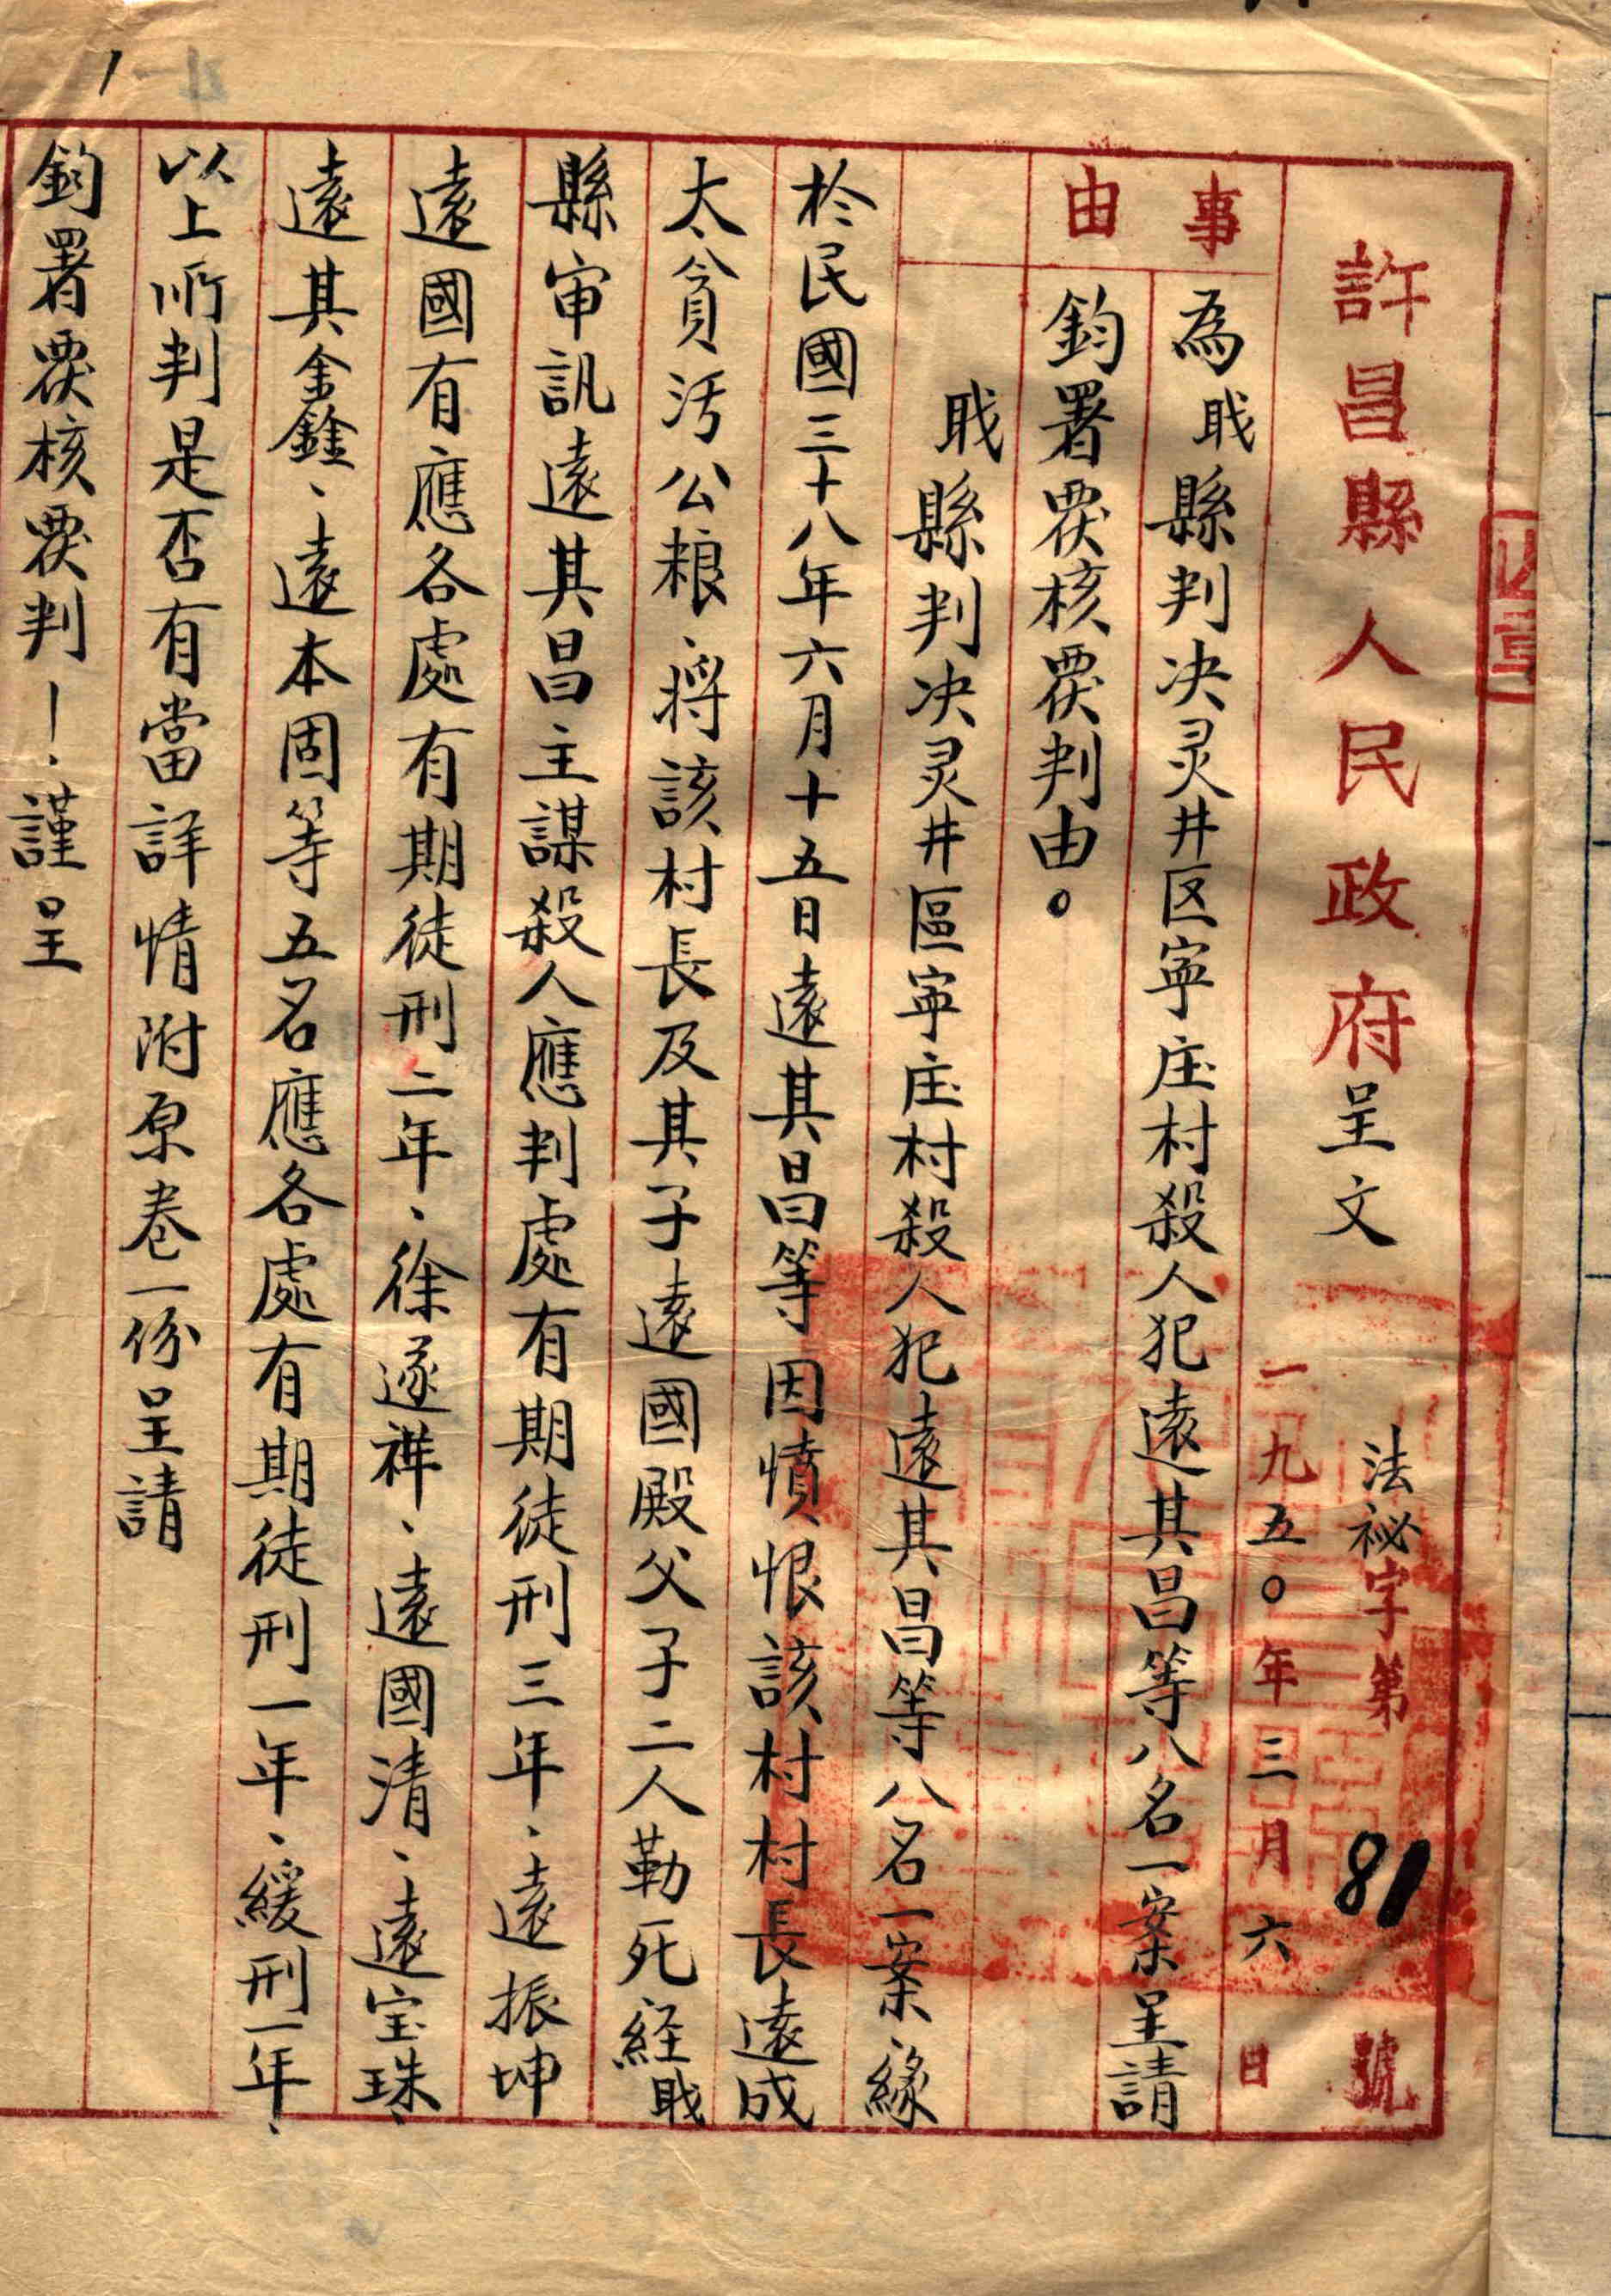 許昌縣人民政府呈文
法祕字第81號
一九五〇年三月六日
事由
為戝縣判决灵井区寕庄村殺人犯遠其昌等八名一案呈請
鈞署覆核覆判由。
戝縣判决灵井區寕庄村殺人犯遠其昌等八名一案、緣
於民國三十八年六月十五日遠其昌等因憤恨該村村長遠成
太貪污公粮、将該村長及其子遠國殿父子二人勒死、経戝
縣审訊遠其昌主謀殺人應判處有期徒刑三年、遠振坤
遠國有應各處有期徒刑二年、徐遂祥、遠國清、遠宝珠、
遠其鑫鍂、遠本固等五名應各處有期徒刑一年、緩刑一年、
以上所判是否有當詳情附原卷一份呈請
鈞署覆核覆判！謹呈
1